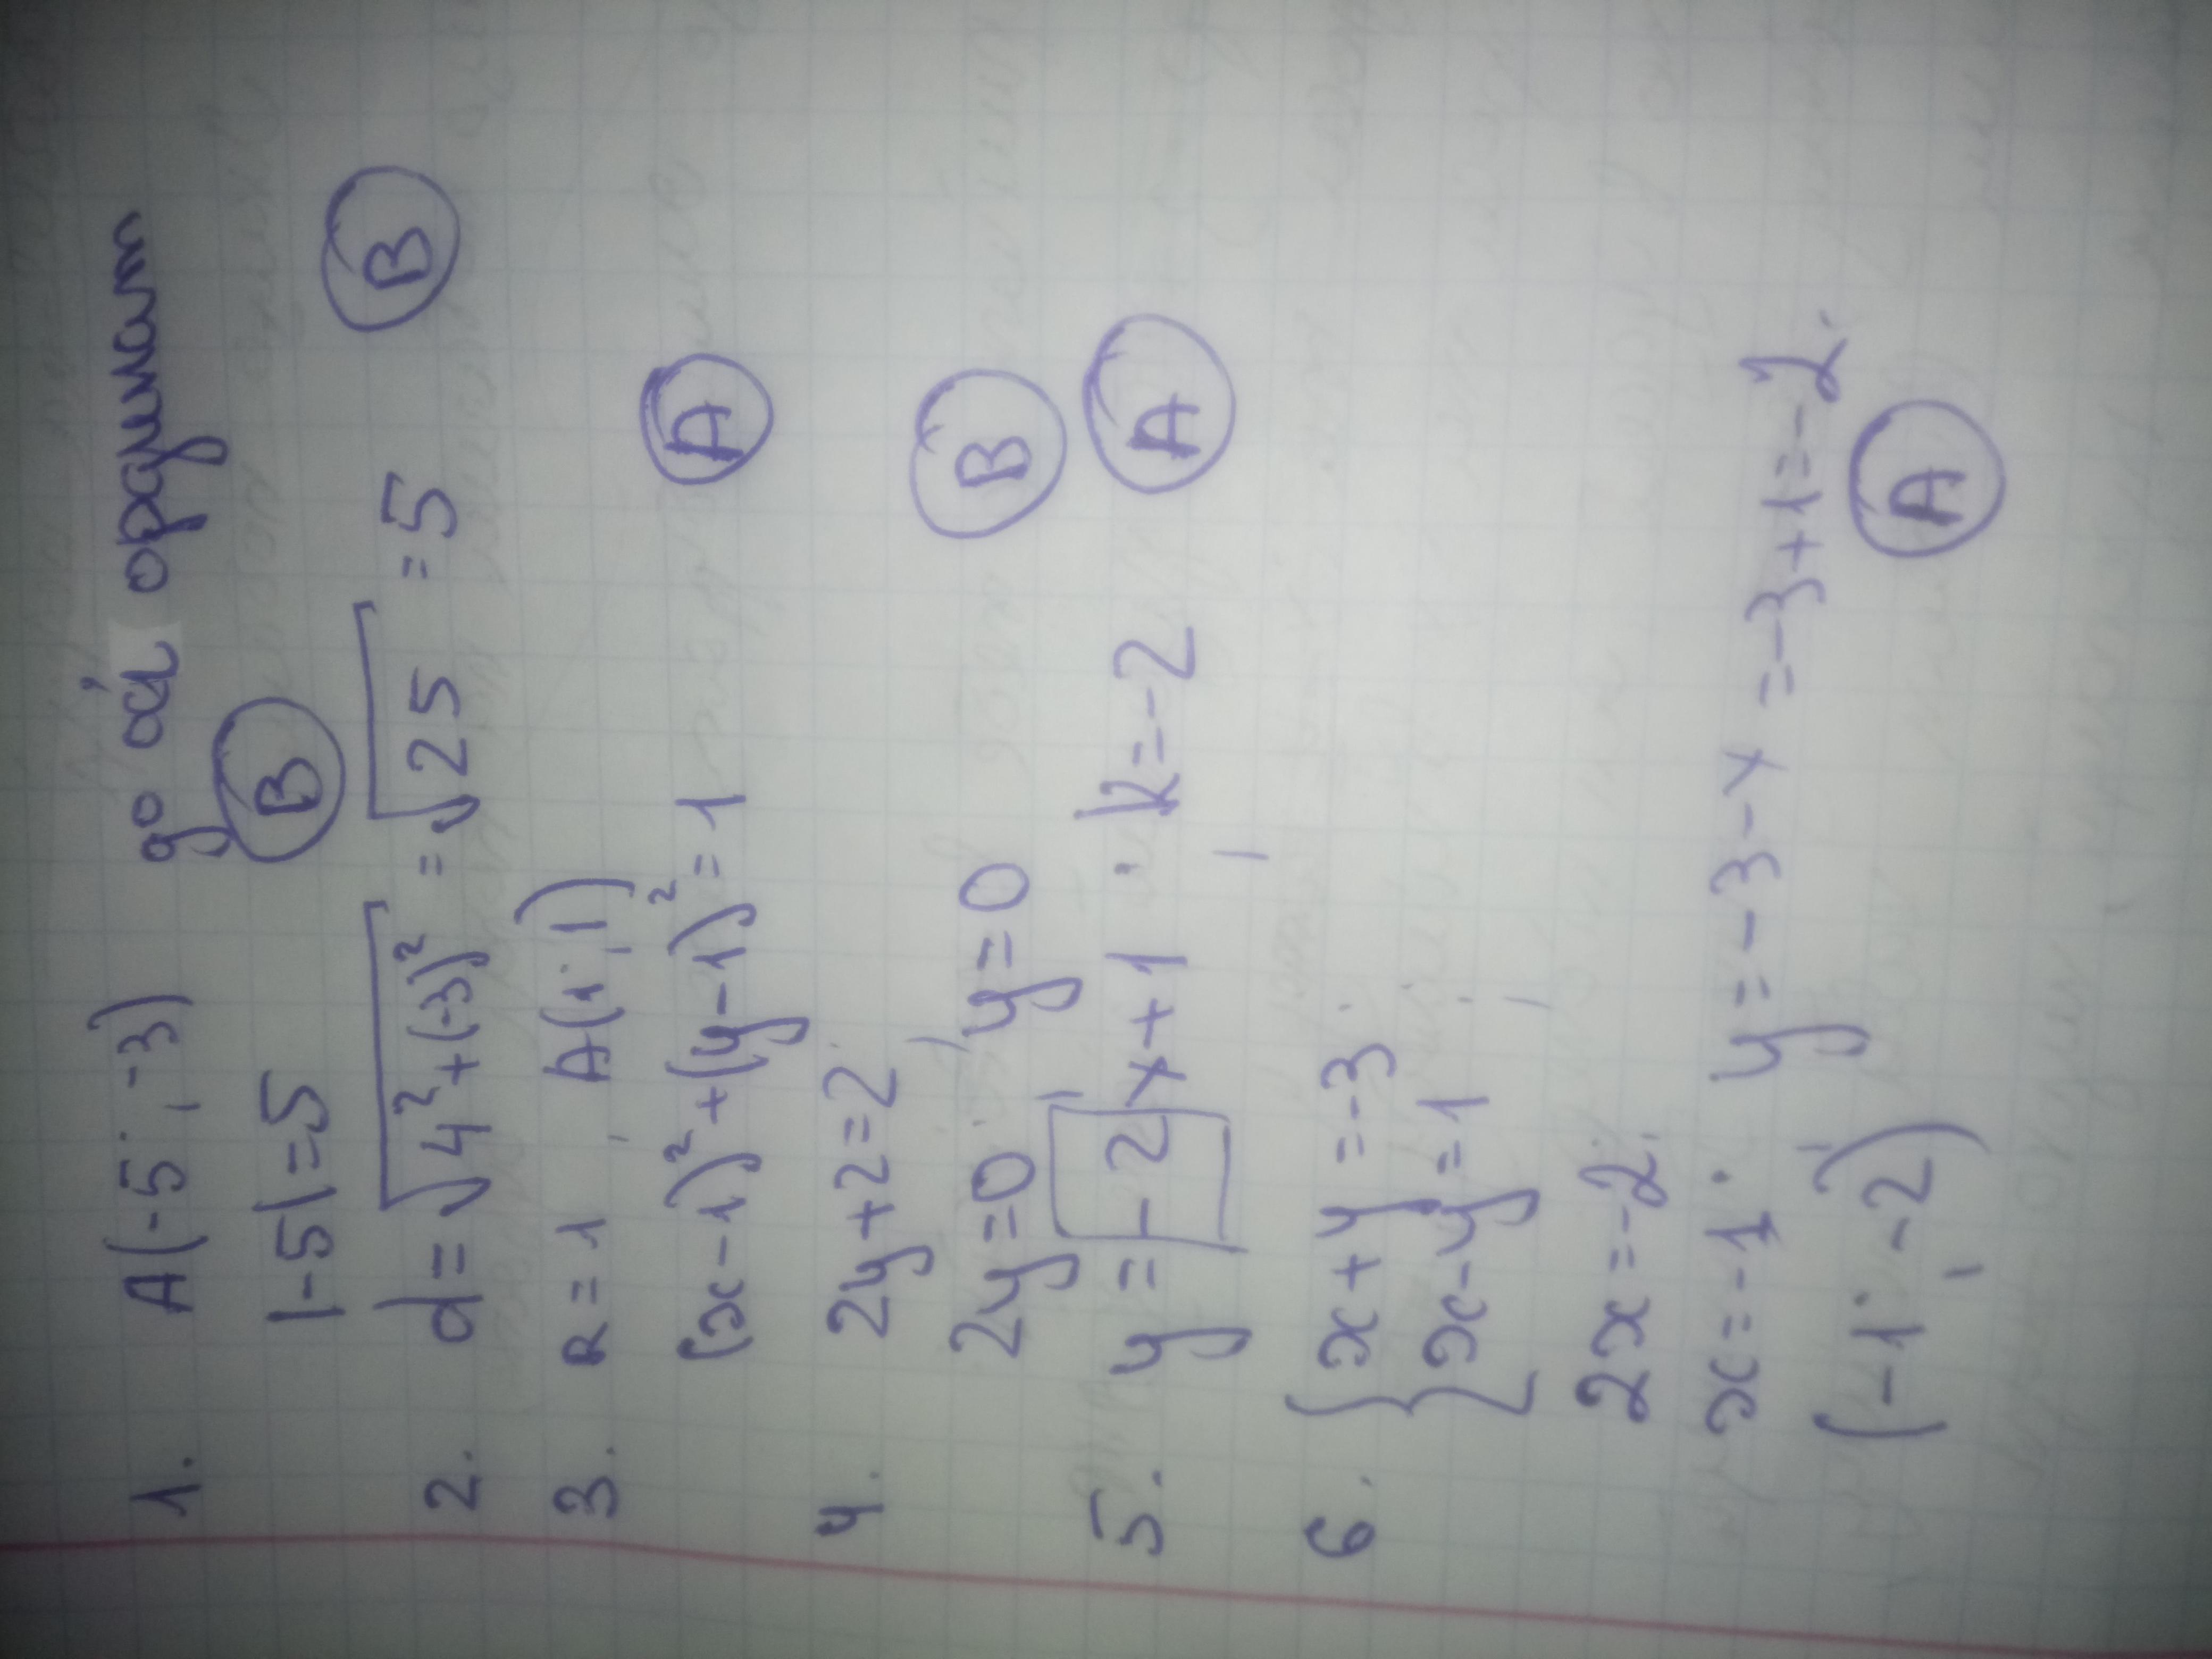 1. A(-5; -3) до осі ординат
|-5|=5 В
2. d=√4²+(-3)² =√25 =5 В
3. R=1, A(1; 1)
(x-1)²+(y-1)²=1 А
4. 2y+2=2;
2y=0; y=0 В
5. y=-2x+1; k=-2 А
6. {x+y=-3;
{x-y=1;
2x=-2;
x=-1; y=-3-x=-3+1=-2.
(-1; -2) А